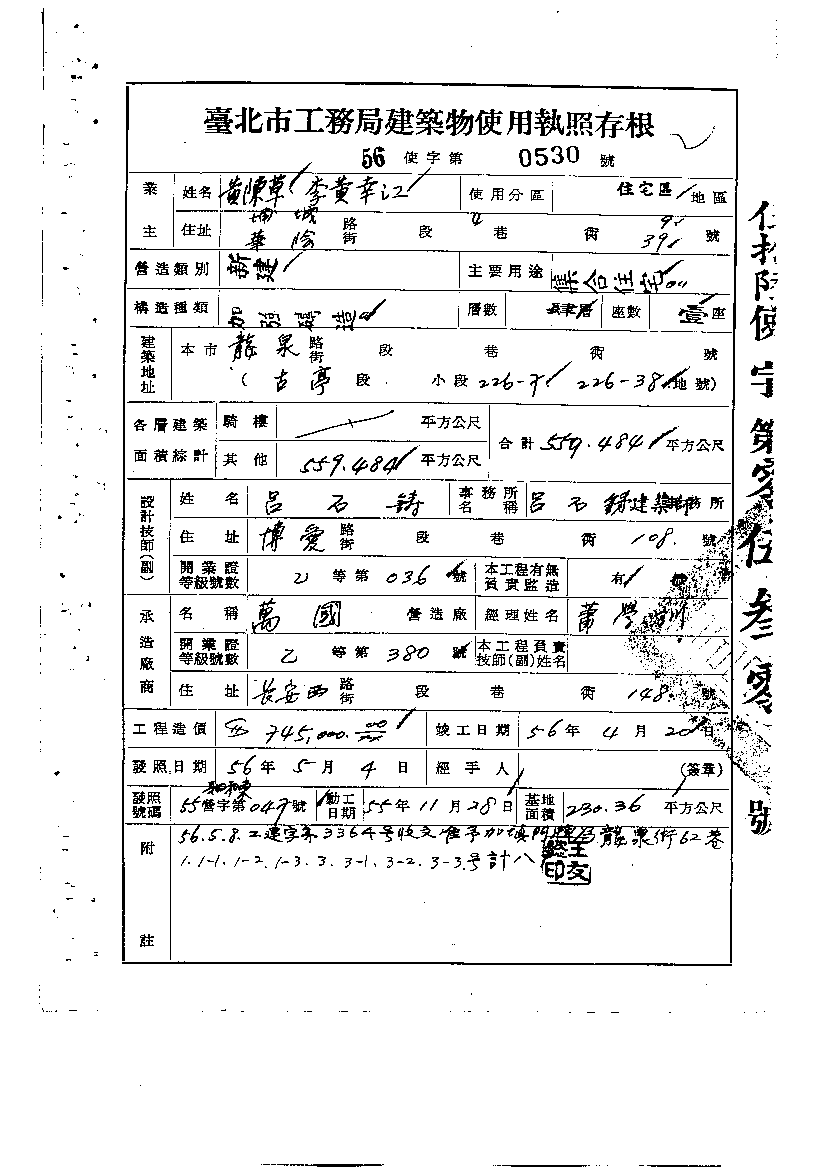 臺北市工務局建築物使用執照存根
56 使字第 0530 號
業主 姓名 黃陳草 李黃幸江 使用分區 住宅區 地區
住址 路街 段 4 巷 衖 9 39 號
華陰
營造類別 新建 主要用途 集合住宅
構造種類 加強磚造 層數 肆層 座數 壹座
建築地址 本市 龍泉 路街 段 巷 衖 號
(古亭 段 小段 226-38 地號)
各層建築面積綜計 騎樓 平方公尺 合計 559.484 平方公尺
其他 559.484 平方公尺
設計技師(副) 姓名 呂石鑄 事務所名稱 呂石鑄建築師事務所
住址 博愛 路街 段 巷 衖 108 號
開業證等級號數 乙 等第 036 號 本工程有無負責監造 有
承造廠商 名稱 萬國 營造廠 經理姓名 蕭學
開業證等級號數 乙 等第 380 號 本工程負責技師(副)姓名
住址 長安西 路街 段 巷 衖 148 號
工程造價 745,000.00 竣工日期 56 年 4 月 20 日
發照日期 56 年 5 月 4 日 經手人 (簽章)
發照號碼 55 營字第 047 號 動工日期 55 年 11 月 28 日 基地面積 230.36 平方公尺
附註 56.5.8.工建字第3364號收文准予加填門牌為龍泉街62巷
1.1-1.1-2.1-3.3.3-1.3-2.3-3.号計八
王友懿印
伍拾陸使字第零伍叁零號